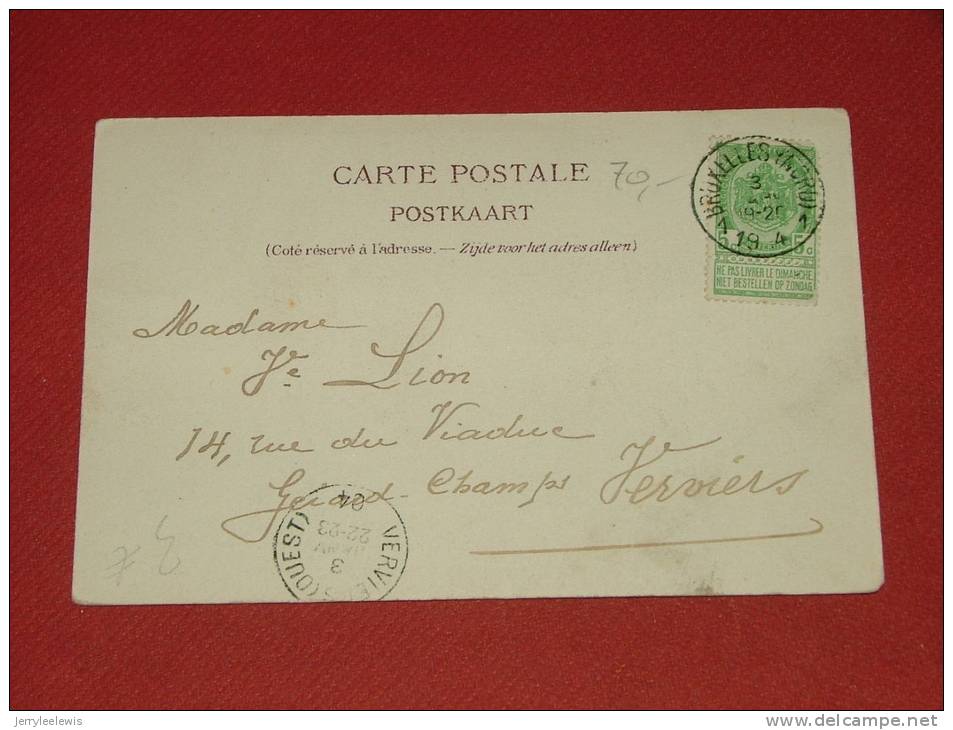 CARTE POSTALE
70,-
POSTKAART
(Coté réservé à l'adresse. — Zijde voor het adres alleen)
BRUXELLES (NORD) 1
3
19-20
19 4
5
NE PAS LIVRER LE DIMANCHE
NIET BESTELLEN OP ZONDAG
Madame
Ve Lion
14, rue du Viaduc
Gerard-Champs Verviers
VERVIERS (OUEST)
3
JANV
22-23
04
jerryleelewis
www.delcampe.net